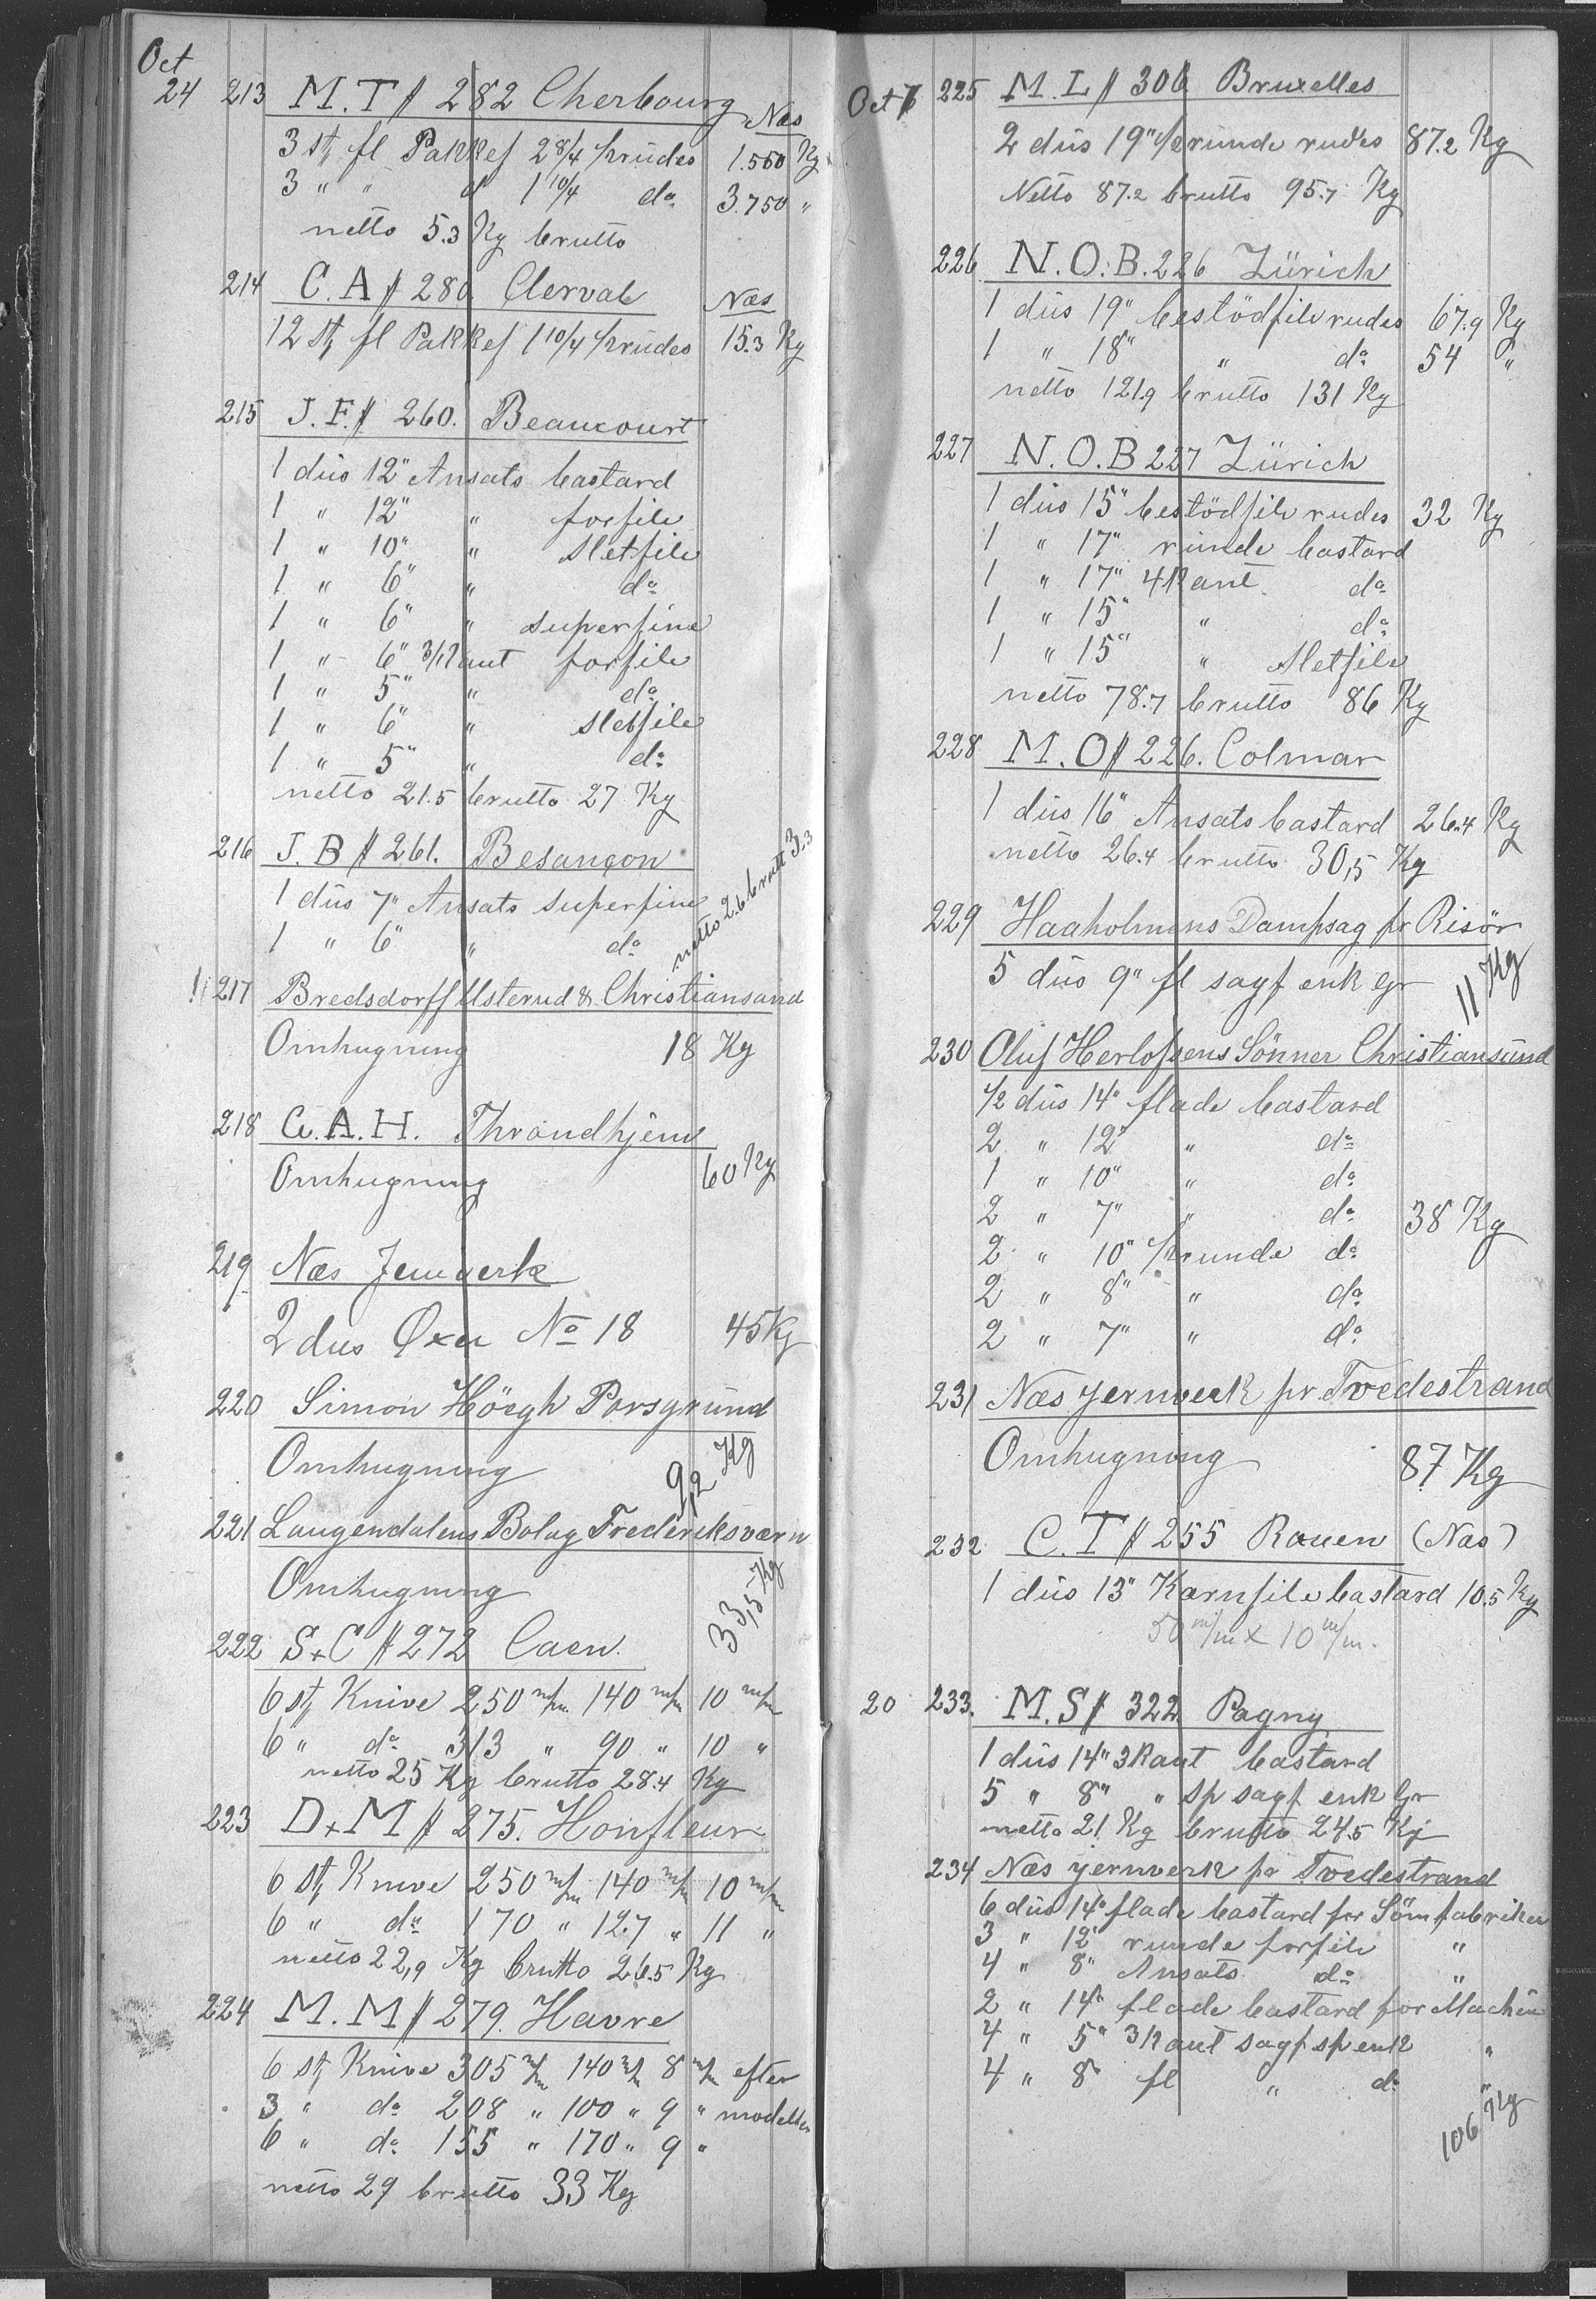 Oct
24 213 M.T # 282 Cherbourg Næs
3 st, fl Pakkef 2 8/4 ½ rudes 1.550 Kg
3 " " d 1 10/4 do 3.750 "
netto 5.3 Kg brutto
214 C.A # 280 Clerval Næs
12 st, fl Pakkef 1 10/4 ½ rudes 15.3 Kg
215 J.F. # 260. Beaucourt
1 dus 12" Ansats bastard
1 " 12" " forfile
1 " 10" " Sletfile
1 " 6" " do
1 " 6" " superfine
1 " 6" 3/Kant forfile
1 " 5" " do
1 " 6" " Sletfile
1 " 5" " do
netto 21.5 brutto 27 Kg
216 J.B # 261. Besançon
1 dus 7" Ansats superfine
1 " 6" " do
netto 2.6 brutt 3.3
217 Bredsdorff Usterud & Christiansand
Omhugning 18 Kg
218 C.A.H. Throndhjem
Omhugning 60 Kg
219 Næs Jernverk
2 dus Øxer No 18 45 Kg
220 Simon Höegh Porsgrund
Omhugning 9,2 Kg
221 Laugendalens Bolag Frederiksværn
Omhugning 33,5 Kg
222 S+C # 272 Caen.
6 st, Knive 250 m/m 140 m/m 10 m/m
6 " do 313 " 90 " 10 "
netto 25 Kg brutto 28.4 Kg
223 D+M # 275. Honfleur
6 st, Knive 250 m/m 140 m/m 10 m/m
6 " do 170 " 127 " 11 "
netto 22,9 Kg brutto 26.5 Kg
224 M.M # 279. Havre
6 st, Knive 305 m/m 140 m/m 8 m/m efter
3 " do 208 " 100 " 9 " modeller
6 " do 155 " 170 " 9 "
netto 29 brutto 33 Kg
Oct 225 M.L # 306 Bruxelles
2 dus 19" ½ runde rudes 87.2 Kg
Netto 87.2 brutto 95.7 Kg
226 N.O.B. 226 Zürich
1 dus 19" bestödfile rudes 67.9 Kg
1 " 18" " do 54 "
netto 121.9 brutto 131 Kg
227 N.O.B 227 Zürich
1 dus 15" bestödfile rudes 32 Kg
1 " 17" runde bastard
1 " 17" 4Kant do
1 " 15" " do
1 " 15" " Sletfile
netto 78.7 brutto 86 Kg
228 M.O # 226. Colmar
1 dus 16" Ansats bastard 26.4 Kg
netto 26.4 brutto 30,5 Kg
229 Haaholmens Dampsag pr Risör
5 dus 9" fl sagf enk Gr 11 Kg
230 Oluf Herlofsens Sönner Christiansund
½ dus 14" flade bastard
2 " 12" " do
1 " 10" " do
2 " 7" " do 38 Kg
2 " 10" ½ runde do
2 " 8" " do
2 " 7" " do
231 Næs jernverk pr Tvedestrand
Omhugning 87 Kg
232 C.T # 255 Rouen (Næs)
1 dus 13" Karnfile bastard 10.5 Kg
50 m/m x 10 m/m.
20 233. M.S # 322 Pagny
1 dus 14" 3Kant bastard
5 " 8" " sp sagf enk Gr
netto 21 Kg brutto 24.5 Kg
234 Næs jernverk pr Tvedestrand
6 dus 14" flade bastard for Sömfabriken
3 " 12" runde forfile "
4 " 8" Ansats do "
2 " 14" flade bastard for Machin
4 " 5" 3Kant sagf sp enk "
4 " 8" fl " do "
106 Kg